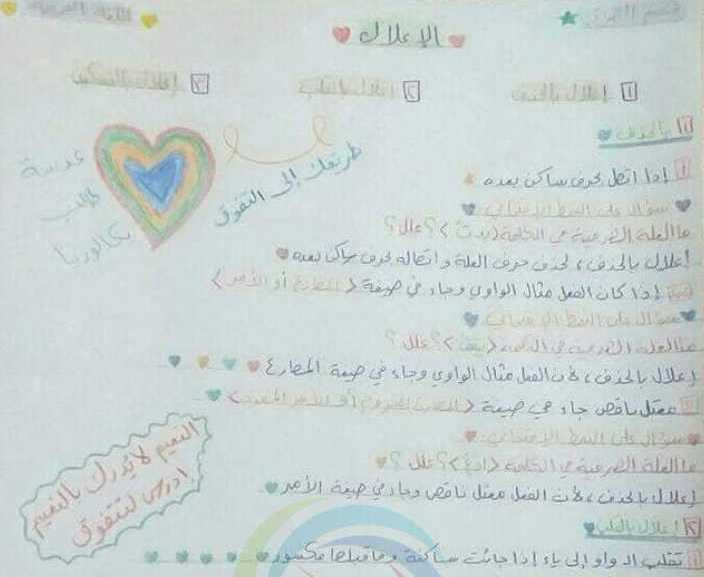 قسم اللغوي
اللغة العربية
الإعلال
١ إعلال بالحذف
٢ إعلال بالقلب
٣ إعلال بالتسكين
١ بالحذف
١ إذا اتصل بحرف ساكن بعده
سؤال على النمط الامتحاني
ما العلة الصرفية في الكلمة علل؟
إعلال بالحذف، لحذف حرف العلة واتصاله بحرف ساكن بعده
إذا كان الفعل مثال الواوي وجاء في صيغة (المضارع أو الأمر)
سؤال على النمط الامتحاني
ما العلة الصرفية في الكلمة علل؟
إعلال بالحذف، لأن الفعل مثال الواوي وجاء في صيغة المضارع
معتل ناقص جاء في صيغة
سؤال على النمط الامتحاني
ما العلة الصرفية في الكلمة علل؟
إعلال بالحذف، لأن الفعل معتل ناقص وجاء في صيغة الأمر
٢ إعلال بالقلب
١ تقلب الواو إلى ياء إذا جائت ساكنة وما قبلها مكسور
عدسة
طالب
بكالوريا
طريقك إلى التفوق
النعيم لا يُدرك بالنعيم
إدرس لتتفوق